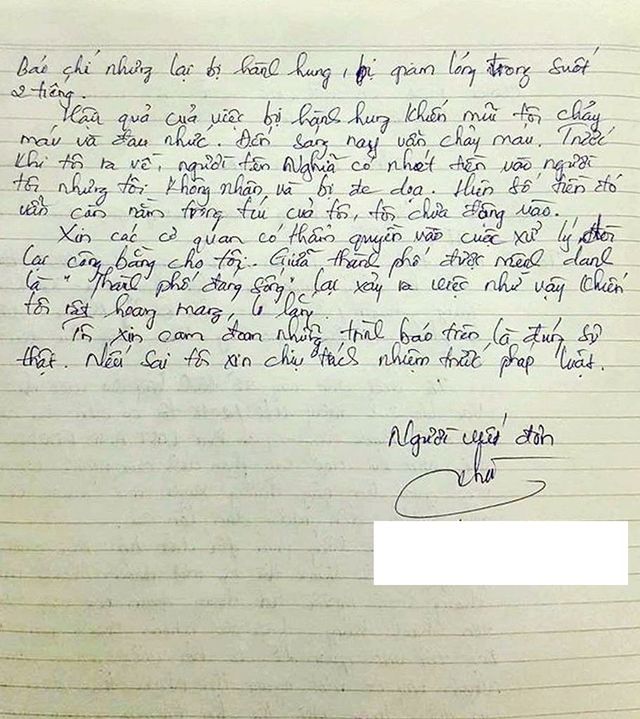 Báo chí nhưng lại bị hành hung, bị giam lỏng trong suốt
2 tiếng.
Hậu quả của việc bị hành hung khiến mũi tôi chảy
máu và đau nhức. Đến sang nay vẫn chảy máu. Trước
khi tôi ra về, người tên Nghĩa có nhét tiền vào người
tôi nhưng tôi không nhận và bị đe dọa. Hiện số tiền đó
vẫn còn nằm trong túi của tôi, tôi chưa động vào.
Xin các cơ quan có thẩm quyền vào cuộc xử lý, đòi
lại công bằng cho tôi. Giữa thành phố được mệnh danh
là "Thành phố đáng sống" lại xảy ra việc như vậy khiến
tôi rất hoang mang, lo lắng.
Tôi xin cam đoan những trình báo trên là đúng sự
thật. Nếu sai tôi xin chịu trách nhiệm trước pháp luật.
Người viết đơn